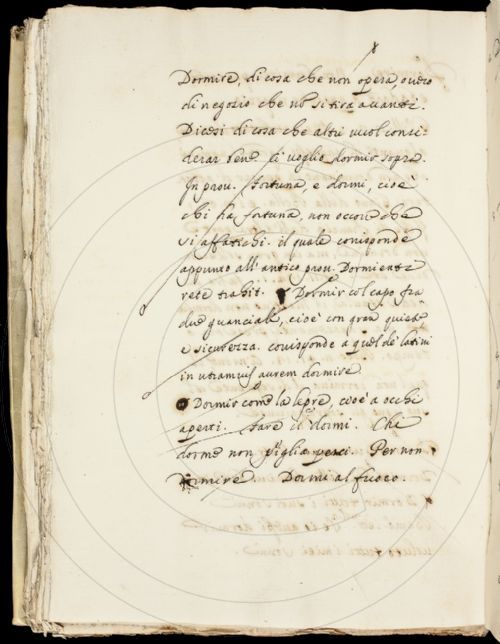 Dormire, di cosa che non opera, ouero
di negozio che nõ si tira auanti.
Dicesi di cosa che altri vuol consi-
derar bene ci uoglio dormir sopra.
In prou. fortuna, e dormi, cioè
chi ha fortuna, non occorre che
si affatichi. il quale corrisponde
appunto all'antico prou. Dormienti
rete trahit. Dormir col capo fra
due guanciali, cioè con gran quiete
e sicurezza. corrisponde a quel de' latini
in utramuis aurem dormire.
Dormir come la lepre, cioè a occhi
aperti. fare il dormi. Chi
dorme non piglia pesci. Per non
dormire. Dormi al fuoco.